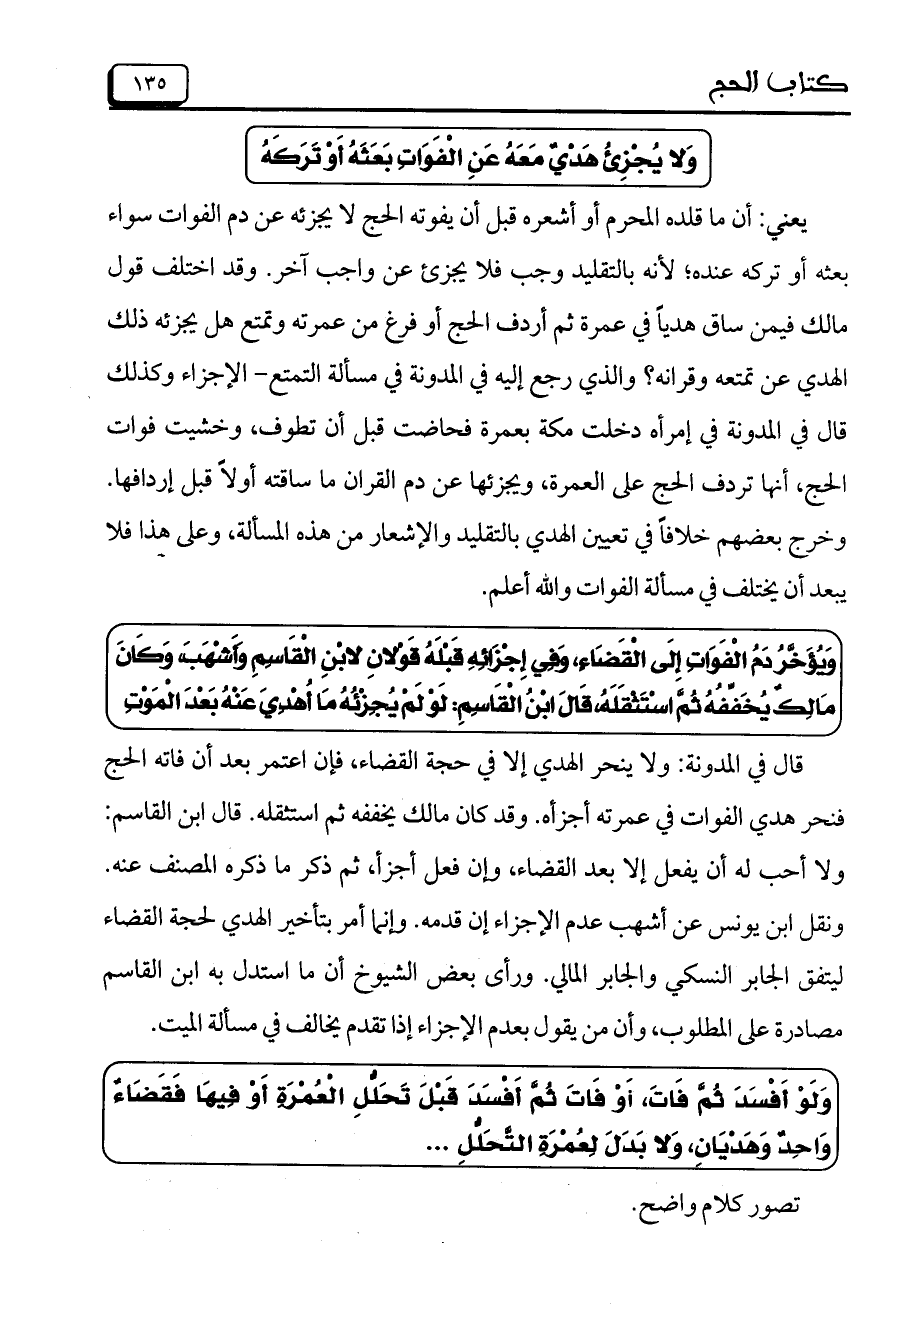 كتاب الحج
١٣٥
وَلا يُجْزِئُ هَدْيٌ مَعَهُ عَنِ الْفَوَاتِ بَعَثَهُ أَوْ تَرَكَهُ
يعني: أن ما قلده المحرم أو أشعره قبل أن يفوته الحج لا يجزئه عن دم الفوات سواء
بعثه أو تركه عنده؛ لأنه بالتقليد وجب فلا يجزئ عن واجب آخر. وقد اختلف قول
مالك فيمن ساق هدياً في عمرة ثم أردف الحج أو فرغ من عمرته وتمتع هل يجزئه ذلك
الهدي عن تمتعه وقرانه؟ والذي رجع إليه في المدونة في مسألة التمتع– الإجزاء وكذلك
قال في المدونة في إمرأه دخلت مكة بعمرة فحاضت قبل أن تطوف، وخشيت فوات
الحج، أنها تردف الحج على العمرة، ويجزئها عن دم القران ما ساقته أولاً قبل إردافها.
وخرج بعضهم خلافاً في تعيين الهدي بالتقليد والإشعار من هذه المسألة، وعلى هذا فلا
يبعد أن يختلف في مسألة الفوات والله أعلم.
وَيُؤَخَّرُ دَمُ الْفَوَاتِ إِلَى الْقَضَاءِ، وَفِي إِجْزَائِهِ قَبْلَهُ قَوْلانِ لابْنِ الْقَاسِمِ وَأَشْهَبَ، وَكَانَ
مَالِكٌ يُخَفِّفُهُ ثُمَّ اسْتَثْقَلَهُ، قَالَ ابْنُ الْقَاسِمِ: لَوْ لَمْ يُجْزِئْهُ مَا أُهْدِيَ عَنْهُ بَعْدَ الْمَوْتِ
قال في المدونة: ولا ينحر الهدي إلا في حجة القضاء، فإن اعتمر بعد أن فاته الحج
فنحر هدي الفوات في عمرته أجزأه. وقد كان مالك يخففه ثم استثقله. قال ابن القاسم:
ولا أحب له أن يفعل إلا بعد القضاء، وإن فعل أجزأ، ثم ذكر ما ذكره المصنف عنه.
ونقل ابن يونس عن أشهب عدم الإجزاء إن قدمه. وإنما أمر بتأخير الهدي لحجة القضاء
ليتفق الجابر النسكي والجابر المالي. ورأى بعض الشيوخ أن ما استدل به ابن القاسم
مصادرة على المطلوب، وأن من يقول بعدم الإجزاء إذا تقدم يخالف في مسألة الميت.
وَلَوْ أَفْسَدَ ثُمَّ فَاتَ، أَوْ فَاتَ ثُمَّ أَفْسَدَ قَبْلَ تَحَلُّلِ الْعُمْرَةِ أَوْ فِيهَا فَقَضَاءٌ
وَاحِدٌ وَهَدْيَانِ، وَلا بَدَلَ لِعُمْرَةِ التَّحَلُّلِ ...
تصور كلام واضح.